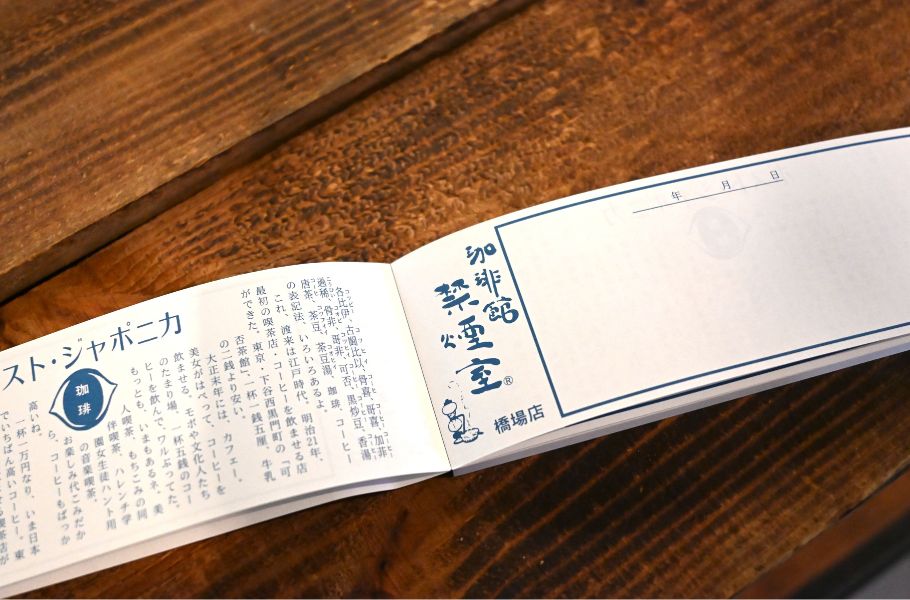 スト・ジャポニカ
珈琲
各比伊、古闘比以、骨喜、哥喜、加非
過稀、骨非、哥非、可否、黒炒豆、香湯
唐茶、茶豆、茶豆湯、珈琲、コーヒー
の表記法、いろいろあるよ。
これ、渡来は江戸時代、明治21年、
最初の喫茶店・コーヒーを飲ませる店
ができた。東京・下谷西黒門町の「可
否茶館」、一杯一銭五厘、牛乳
の二銭より安い。
大正末年には、カフェー。
美女がはべって、コーヒーを
飲ませる。モボや文化人たち
のたまり場。一杯五銭のコー
ヒーを飲んで、ワルぶってた。
もっとも、いまもあるネ、美
人喫茶、もちこみの同
伴喫茶、ハレンチ学
園女生徒ハント用
の音楽喫茶、
お楽しみ代こみだか
ら、コーヒーもばっか
高いね。
一杯一万円なり、いま日本
でいちばん高いコーヒー。東
珈琲館
禁煙室®
橋場店
年 月 日